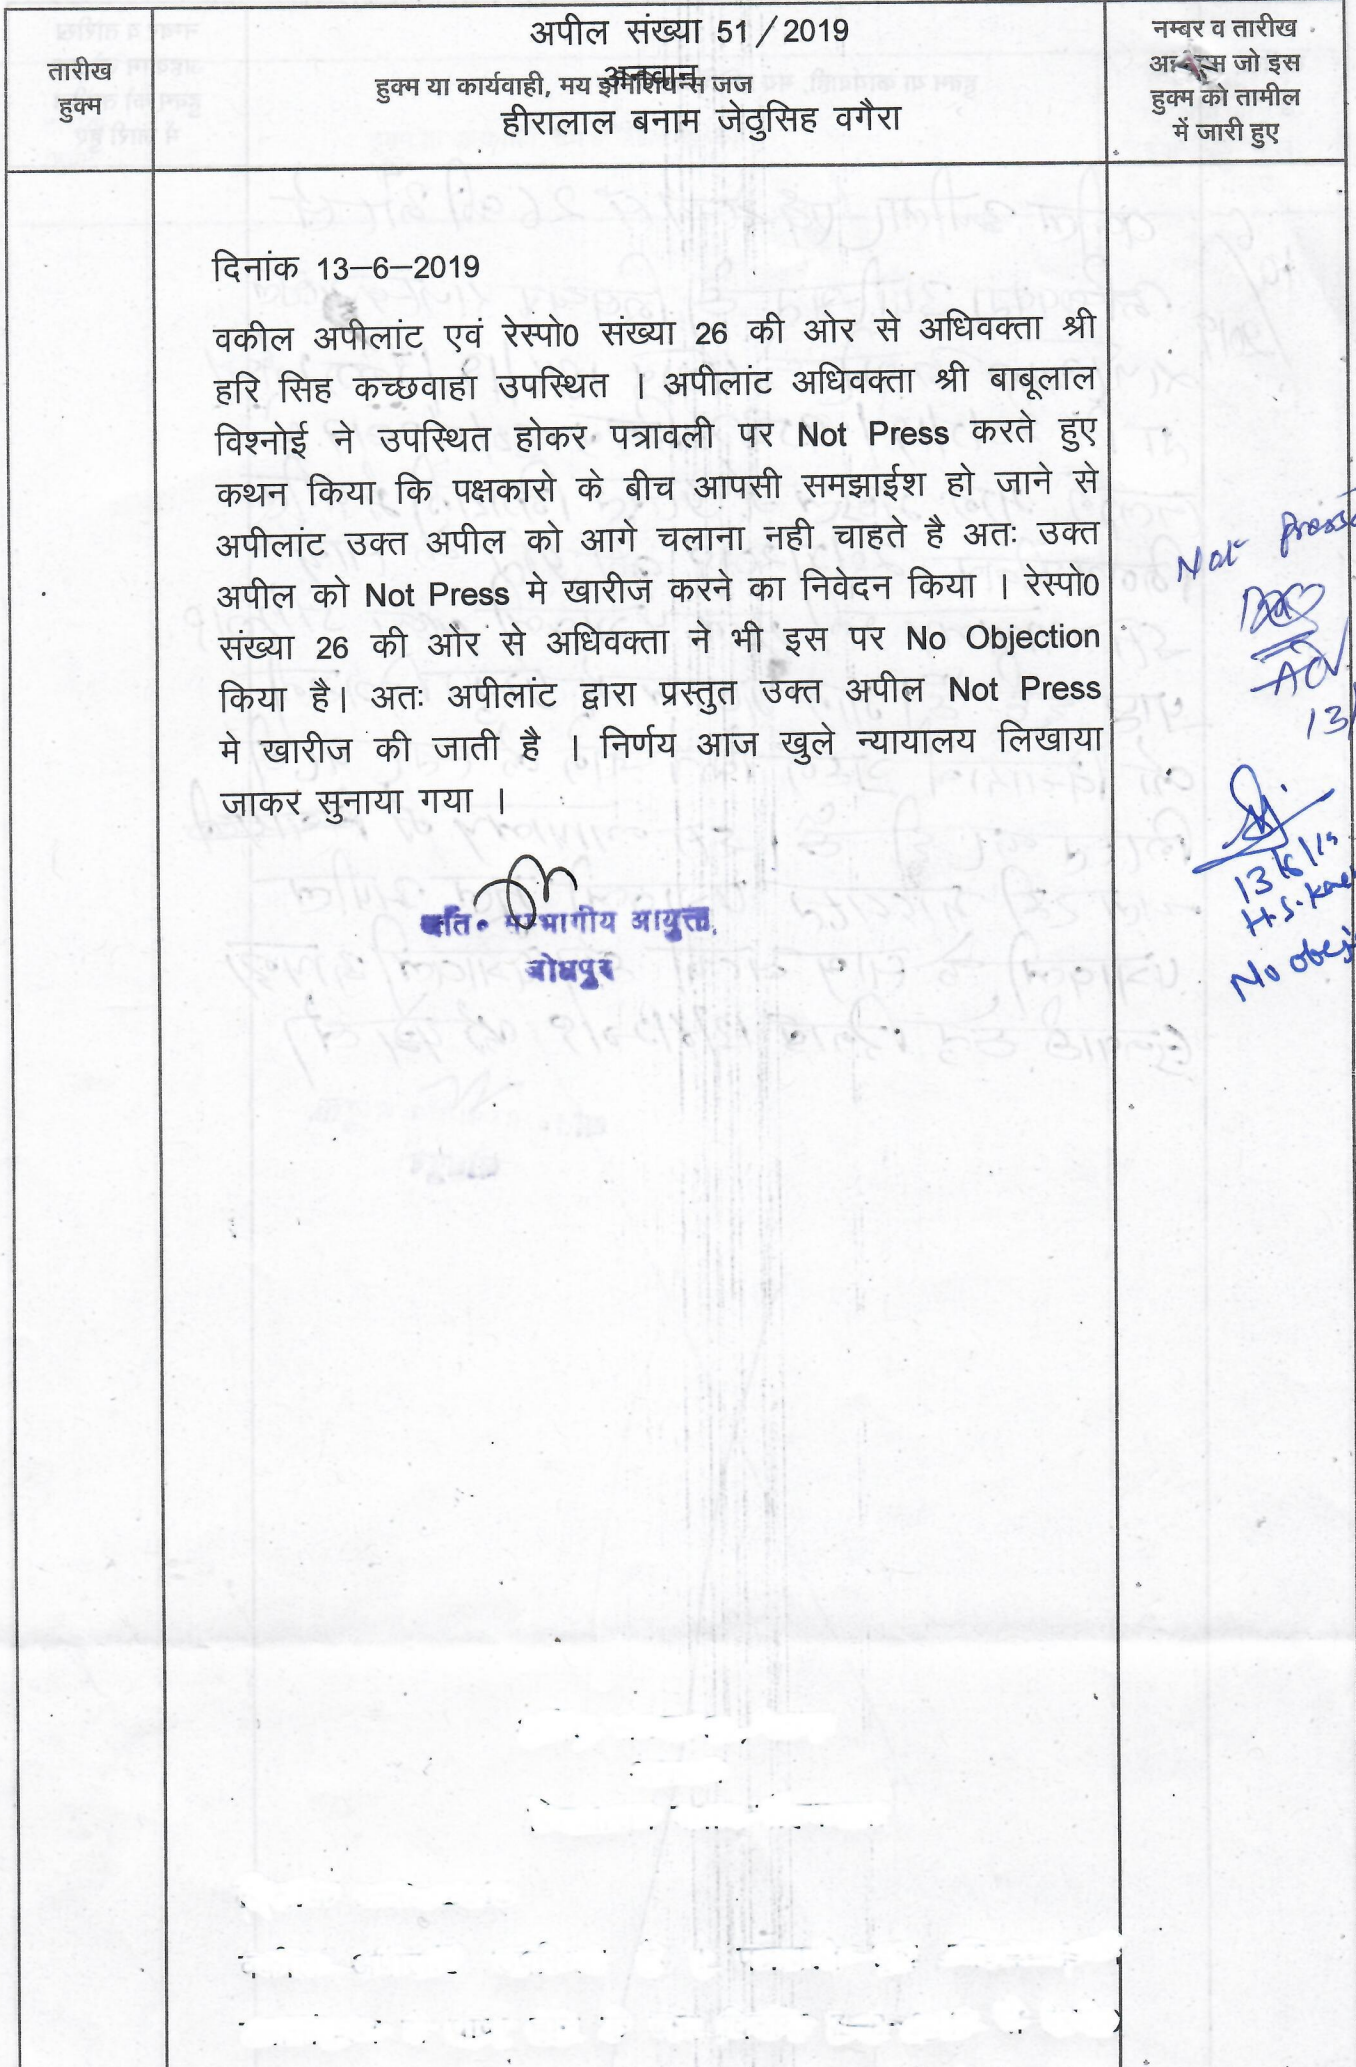 अपील संख्या 51/2019
अनवान
हुक्म या कार्यवाही, मय इनिशियल्स जज
हीरालाल बनाम जेठुसिह वगैरा
तारीख
हुक्म
नम्बर व तारीख
जो इस
हुक्म को तामील
में जारी हुए
दिनांक 13–6–2019
वकील अपीलांट एवं रेस्पो0 संख्या 26 की ओर से अधिवक्ता श्री
हरि सिह कच्छवाहा उपस्थित । अपीलांट अधिवक्ता श्री बाबूलाल
विश्नोई ने उपस्थित होकर पत्रावली पर Not Press करते हुए
कथन किया कि पक्षकारो के बीच आपसी समझाईश हो जाने से
अपीलांट उक्त अपील को आगे चलाना नही चाहते है अतः उक्त
अपील को Not Press मे खारीज करने का निवेदन किया । रेस्पो0
संख्या 26 की ओर से अधिवक्ता ने भी इस पर No Objection
किया है। अतः अपीलांट द्वारा प्रस्तुत उक्त अपील Not Press
मे खारीज की जाती है । निर्णय आज खुले न्यायालय लिखाया
जाकर सुनाया गया ।
अति० सम्भागीय आयुक्त,
जोधपुर
Not
13/
13/6/19
H.S.
No